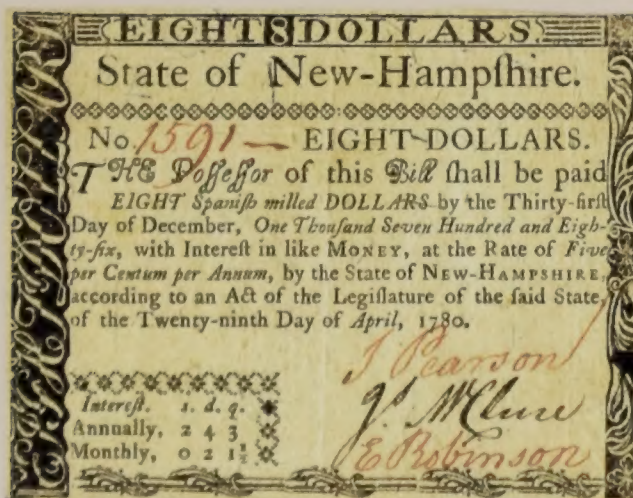 EIGHT 8 DOLLARS.
State of New-Hampſhire.
No 1591 — EIGHT DOLLARS.
THE Poſſeſſor of this Bill ſhall be paid
EIGHT Spaniſh milled DOLLARS by the Thirty-firſt
Day of December, One Thouſand Seven Hundred and Eigh-
ty-ſix, with Intereſt in like MONEY, at the Rate of Five
per Centum per Annum, by the State of NEW-HAMPSHIRE,
according to an Act of the Legiſlature of the ſaid State,
of the Twenty-ninth Day of April, 1780.
J Pearson
Js McClure
E Robinson
Intereſt. s. d. q.
Annually, 2 4 3
Monthly, 0 2 1½
EIGHT DOLLARS